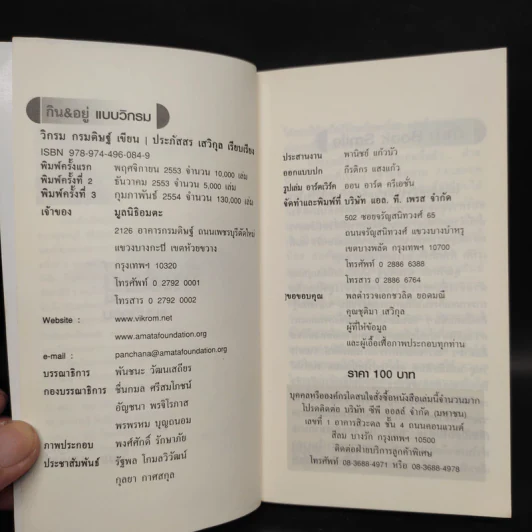 กิน&อยู่ แบบวิกรม
วิกรม กรมดิษฐ์ เขียน | ประภัสสร เสวิกุล เรียบเรียง
ISBN 978-974-496-084-9
พิมพ์ครั้งแรก พฤศจิกายน 2553 จำนวน 10,000 เล่ม
พิมพ์ครั้งที่ 2 ธันวาคม 2553 จำนวน 5,000 เล่ม
พิมพ์ครั้งที่ 3 กุมภาพันธ์ 2554 จำนวน 130,000 เล่ม
เจ้าของ มูลนิธิอมตะ
2126 อาคารกรมดิษฐ์ ถนนเพชรบุรีตัดใหม่
แขวงบางกะปิ เขตห้วยขวาง
กรุงเทพฯ 10320
โทรศัพท์ 0 2792 0001
โทรสาร 0 2792 0002
Website : www.vikrom.net
www.amatafoundation.org
e-mail : panchana@amatafoundation.org
บรรณาธิการ พันชนะ วัฒนเสถียร
กองบรรณาธิการ ชื่นกมล ศรีสมโภชน์
อัญชนา พรจิโรภาส
พรพรหม บุญถนอม
ภาพประกอบ พงศ์ศักดิ์ รักษาภัย
ประชาสัมพันธ์ รัฐพล โกมลวิวัฒน์
กุลยา กาศสกุล
ประสานงาน พานิชย์ แก้วบัว
ออกแบบปก กีรติกร แสงแก้ว
รูปเล่ม อาร์ตเวิร์ค ออน อาร์ต ครีเอชั่น
จัดทำและพิมพ์ที่ บริษัท แอล. ที. เพรส จำกัด
502 ซอยจรัญสนิทวงศ์ 65
ถนนจรัญสนิทวงศ์ แขวงบางบำหรุ
เขตบางพลัด กรุงเทพฯ 10700
โทรศัพท์ 0 2886 6388
โทรสาร 0 2886 6764
ขอขอบคุณ พลตำรวจเอกชวลิต ยอดมณี
คุณชุติมา เสวิกุล
ผู้ที่ให้ข้อมูล
และผู้เอื้อเฟื้อภาพประกอบทุกท่าน
ราคา 100 บาท
บุคคลหรือองค์กรใดสนใจสั่งซื้อหนังสือเล่มนี้จำนวนมาก
โปรดติดต่อ บริษัท ซีพี ออลล์ จำกัด (มหาชน)
เลขที่ 1 อาคารสีวะดล ชั้น 4 ถนนคอนแวนต์
สีลม บางรัก กรุงเทพฯ 10500
ติดต่อฝ่ายบริการลูกค้าพิเศษ
โทรศัพท์ 08-3688-4971 หรือ 08-3688-4978